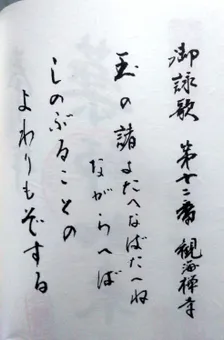 御詠歌 第十二番 観海禅寺
玉の諸よたへなばたへね
ながらへば
しのぶることの
よわりもぞする